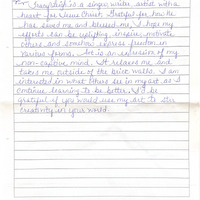 is a singer, writer, artist with a
heart for Jesus Christ. Grateful for how he
has saved me and blessed me. I hope my
efforts can be uplifting, inspire, motivate
others, and somehow express freedom in
various forms. Art is an extension of my
non-captive mind. It relaxes me and
takes me outside of the brick walls. I am
interested in what others see in my art as I
continue learning to be better. I'd be
grateful if you would use my art to stir
creativity in your world.